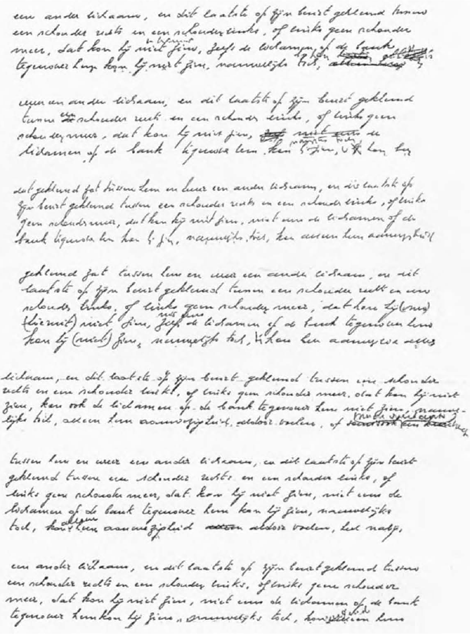 een ander lichaam, en dit laatste op zijn beurt geklemd tussen
een schouder rechts en een schouder links, of links geen schouder
meer, dat kan hij niet zien, zelfs de lichamen op de bank
tegenover hem kan hij niet zien, nauwelijks toch,
weer een ander lichaam, en dit laatste op zijn beurt geklemd
tussen een schouder rechts en een schouder links, of links geen
schouder meer, dat kan hij niet zien, de
lichamen op de bank tegenover hem, kan hij zien,
dat geklemd zat tussen hem en weer een ander lichaam, en dit laatste op
zijn beurt geklemd tussen een schouder rechts en een schouder links, of links
geen schouder meer, dat kan hij niet zien, niet eens de lichamen op de
bank tegenover hem kan hij zien, nauwelijks toch, kan alleen hun aanwezigheid
geklemd zat tussen hem en weer een ander lichaam, en dit
laatste op zijn beurt geklemd tussen een schouder rechts en een
schouder links, of links geen schouder meer, dat kan hij
(hier niet) niet zien, zelfs de lichamen op de bank tegenover hem
kan hij (niet) zien, nauwelijks toch, hun aanwezigheid
lichaam, en dit laatste op zijn beurt geklemd tussen een schouder
rechts en een schouder links, of links geen schouder meer, dat kan hij niet
zien, kan ook de lichamen op de bank tegenover hem niet zien, nauwe-
lijks toch, alleen hun aanwezigheid, aldoor voelen, of
tussen hem en weer een ander lichaam, en dit laatste op zijn beurt
geklemd tussen een schouder rechts en een schouder links, of
links geen schouder meer, dat kan hij niet zien, niet eens de
lichamen op de bank tegenover hem kan hij zien, nauwelijks
toch, kan alleen hun aanwezigheid aldoor voelen, heel nabij,
een ander lichaam, en dit laatste op zijn beurt geklemd tussen
een schouder rechts en een schouder links, of links geen schouder
meer, dat kan hij niet zien, niet eens de lichamen op de bank
tegenover hem kan hij zien, nauwelijks toch, kan alleen hun